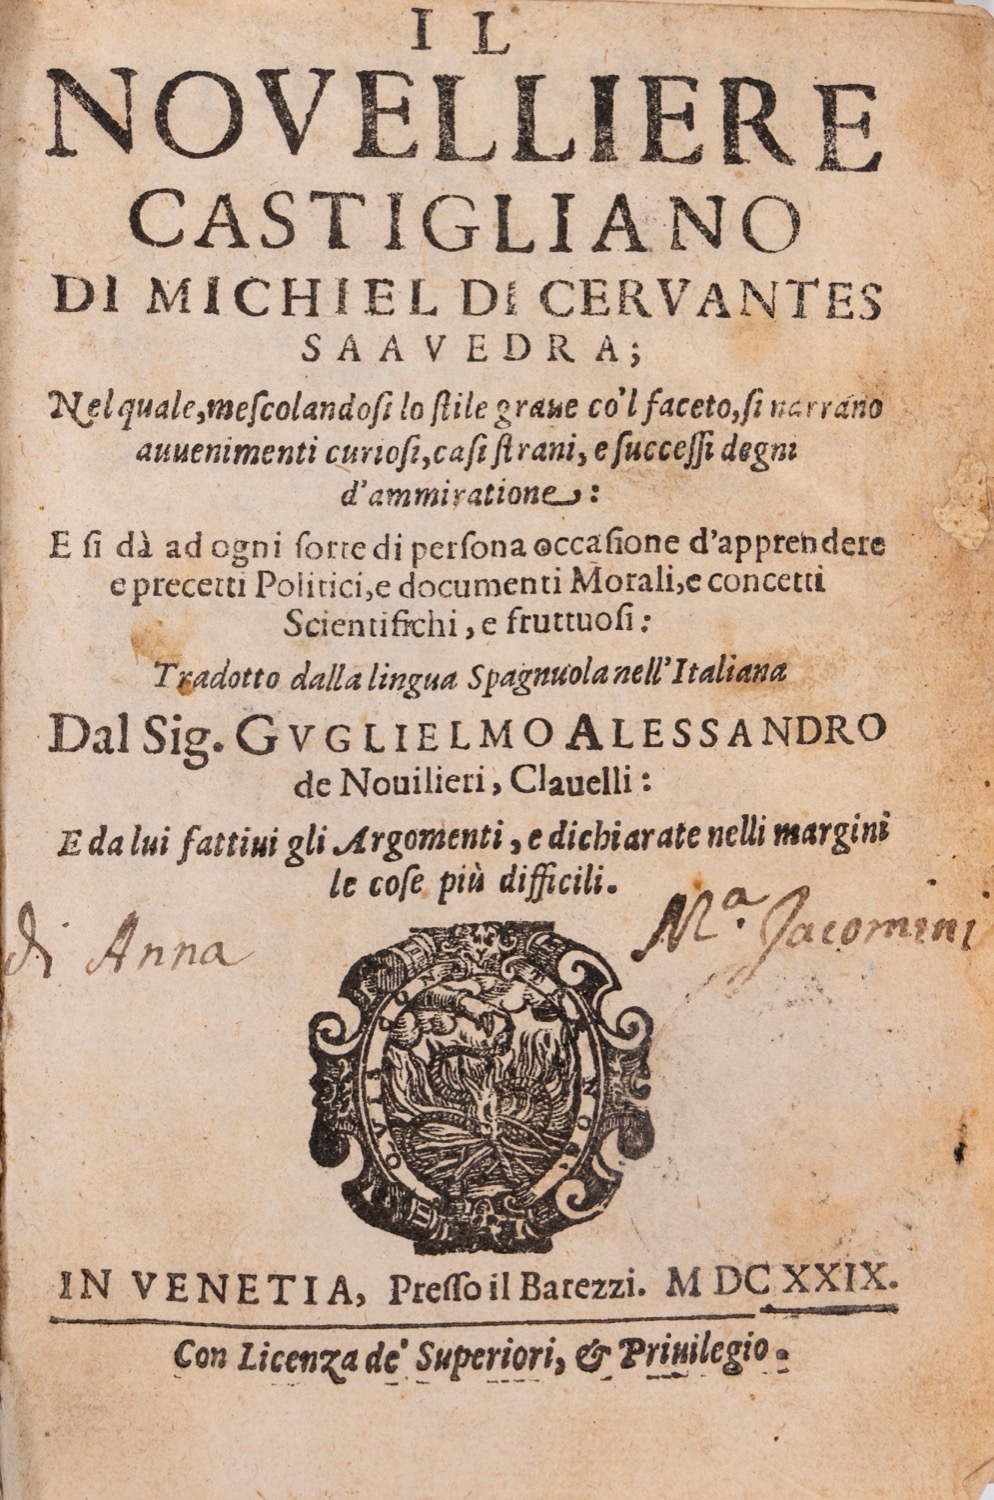 IL
NOVELLIERE
CASTIGLIANO
DI MICHIEL DI CERVANTES
SAAVEDRA;
Nel quale, meſcolandoſi lo ſtile graue co'l faceto, ſi narrano
auuenimenti curioſi, caſi ſtrani, e ſucceſſi degni
d'ammiratione:
E ſi dà ad ogni ſorte di perſona occaſione d'apprendere
e precetti Politici, e documenti Morali, e concetti
Scientifichi, e fruttuoſi:
Tradotto dalla lingua Spagnuola nell'Italiana
Dal Sig. GVGLIELMO ALESSANDRO
de Nouilieri, Clauelli:
E da lui fattiui gli Argomenti, e dichiarate nelli margini
le coſe più difficili.
di Anna Mª. Jacomini
IN VENETIA, Preſſo il Barezzi. MDCXXIX.
Con Licenza de' Superiori, & Priuilegio.